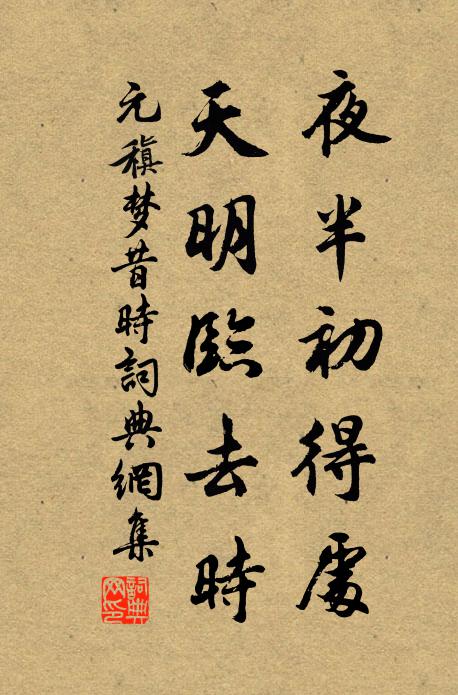 夜半初得處
天明臨去時
元稹梦昔時詞典網集
詞典网印